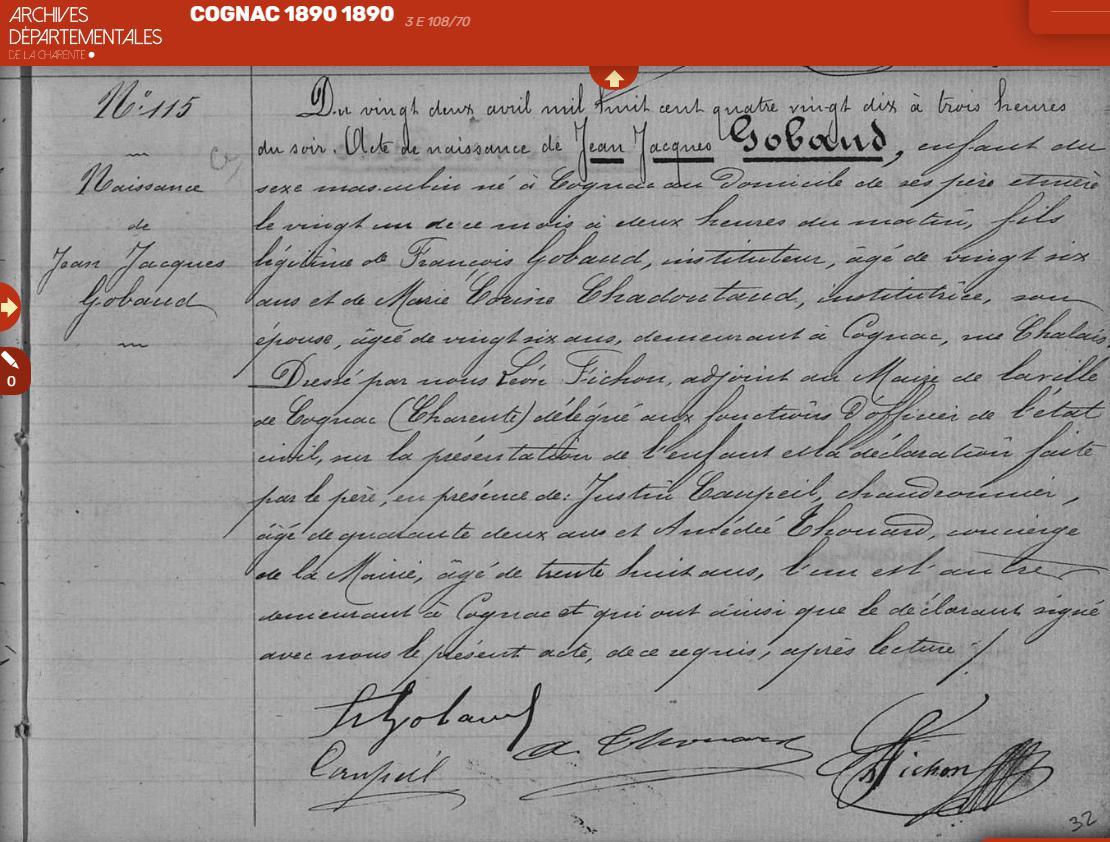 ARCHIVES
DÉPARTEMENTALES
DE LA CHARENTE
COGNAC 1890 1890
3 E 108/70
N° 115
Naissance
de
Jean Jacques
Gobaud
0
Du vingt deux avril mil huit cent quatre vingt dix à trois heures
du soir. Acte de naissance de Jean Jacques Gobaud, enfant du
sexe masculin né à Cognac au domicile de ses père et mère
le vingt un de ce mois à deux heures du matin, fils
légitime de François Gobaud, instituteur, âgé de vingt six
ans et de Marie Corine Chadoutaud, institutrice, son
épouse, âgée de vingt six ans, demeurant à Cognac, rue Chalais.
Dressé par nous Léon Fichon, adjoint au Maire de la ville
de Cognac (Charente) délégué aux fonctions d'officier de l'état
civil, sur la présentation de l'enfant et la déclaration faite
par le père, en présence de: Justin Caupeil, chaudronnier,
âgé de quarante deux ans et Amédée Thouard, concierge
de la Mairie, âgé de trente huit ans, l'un et l'autre
demeurant à Cognac et qui ont ainsi que le déclarant signé
avec nous le présent acte, de ce requis, après lecture ./
Gobaud
Caupeil
A. Thouard
Fichon
32